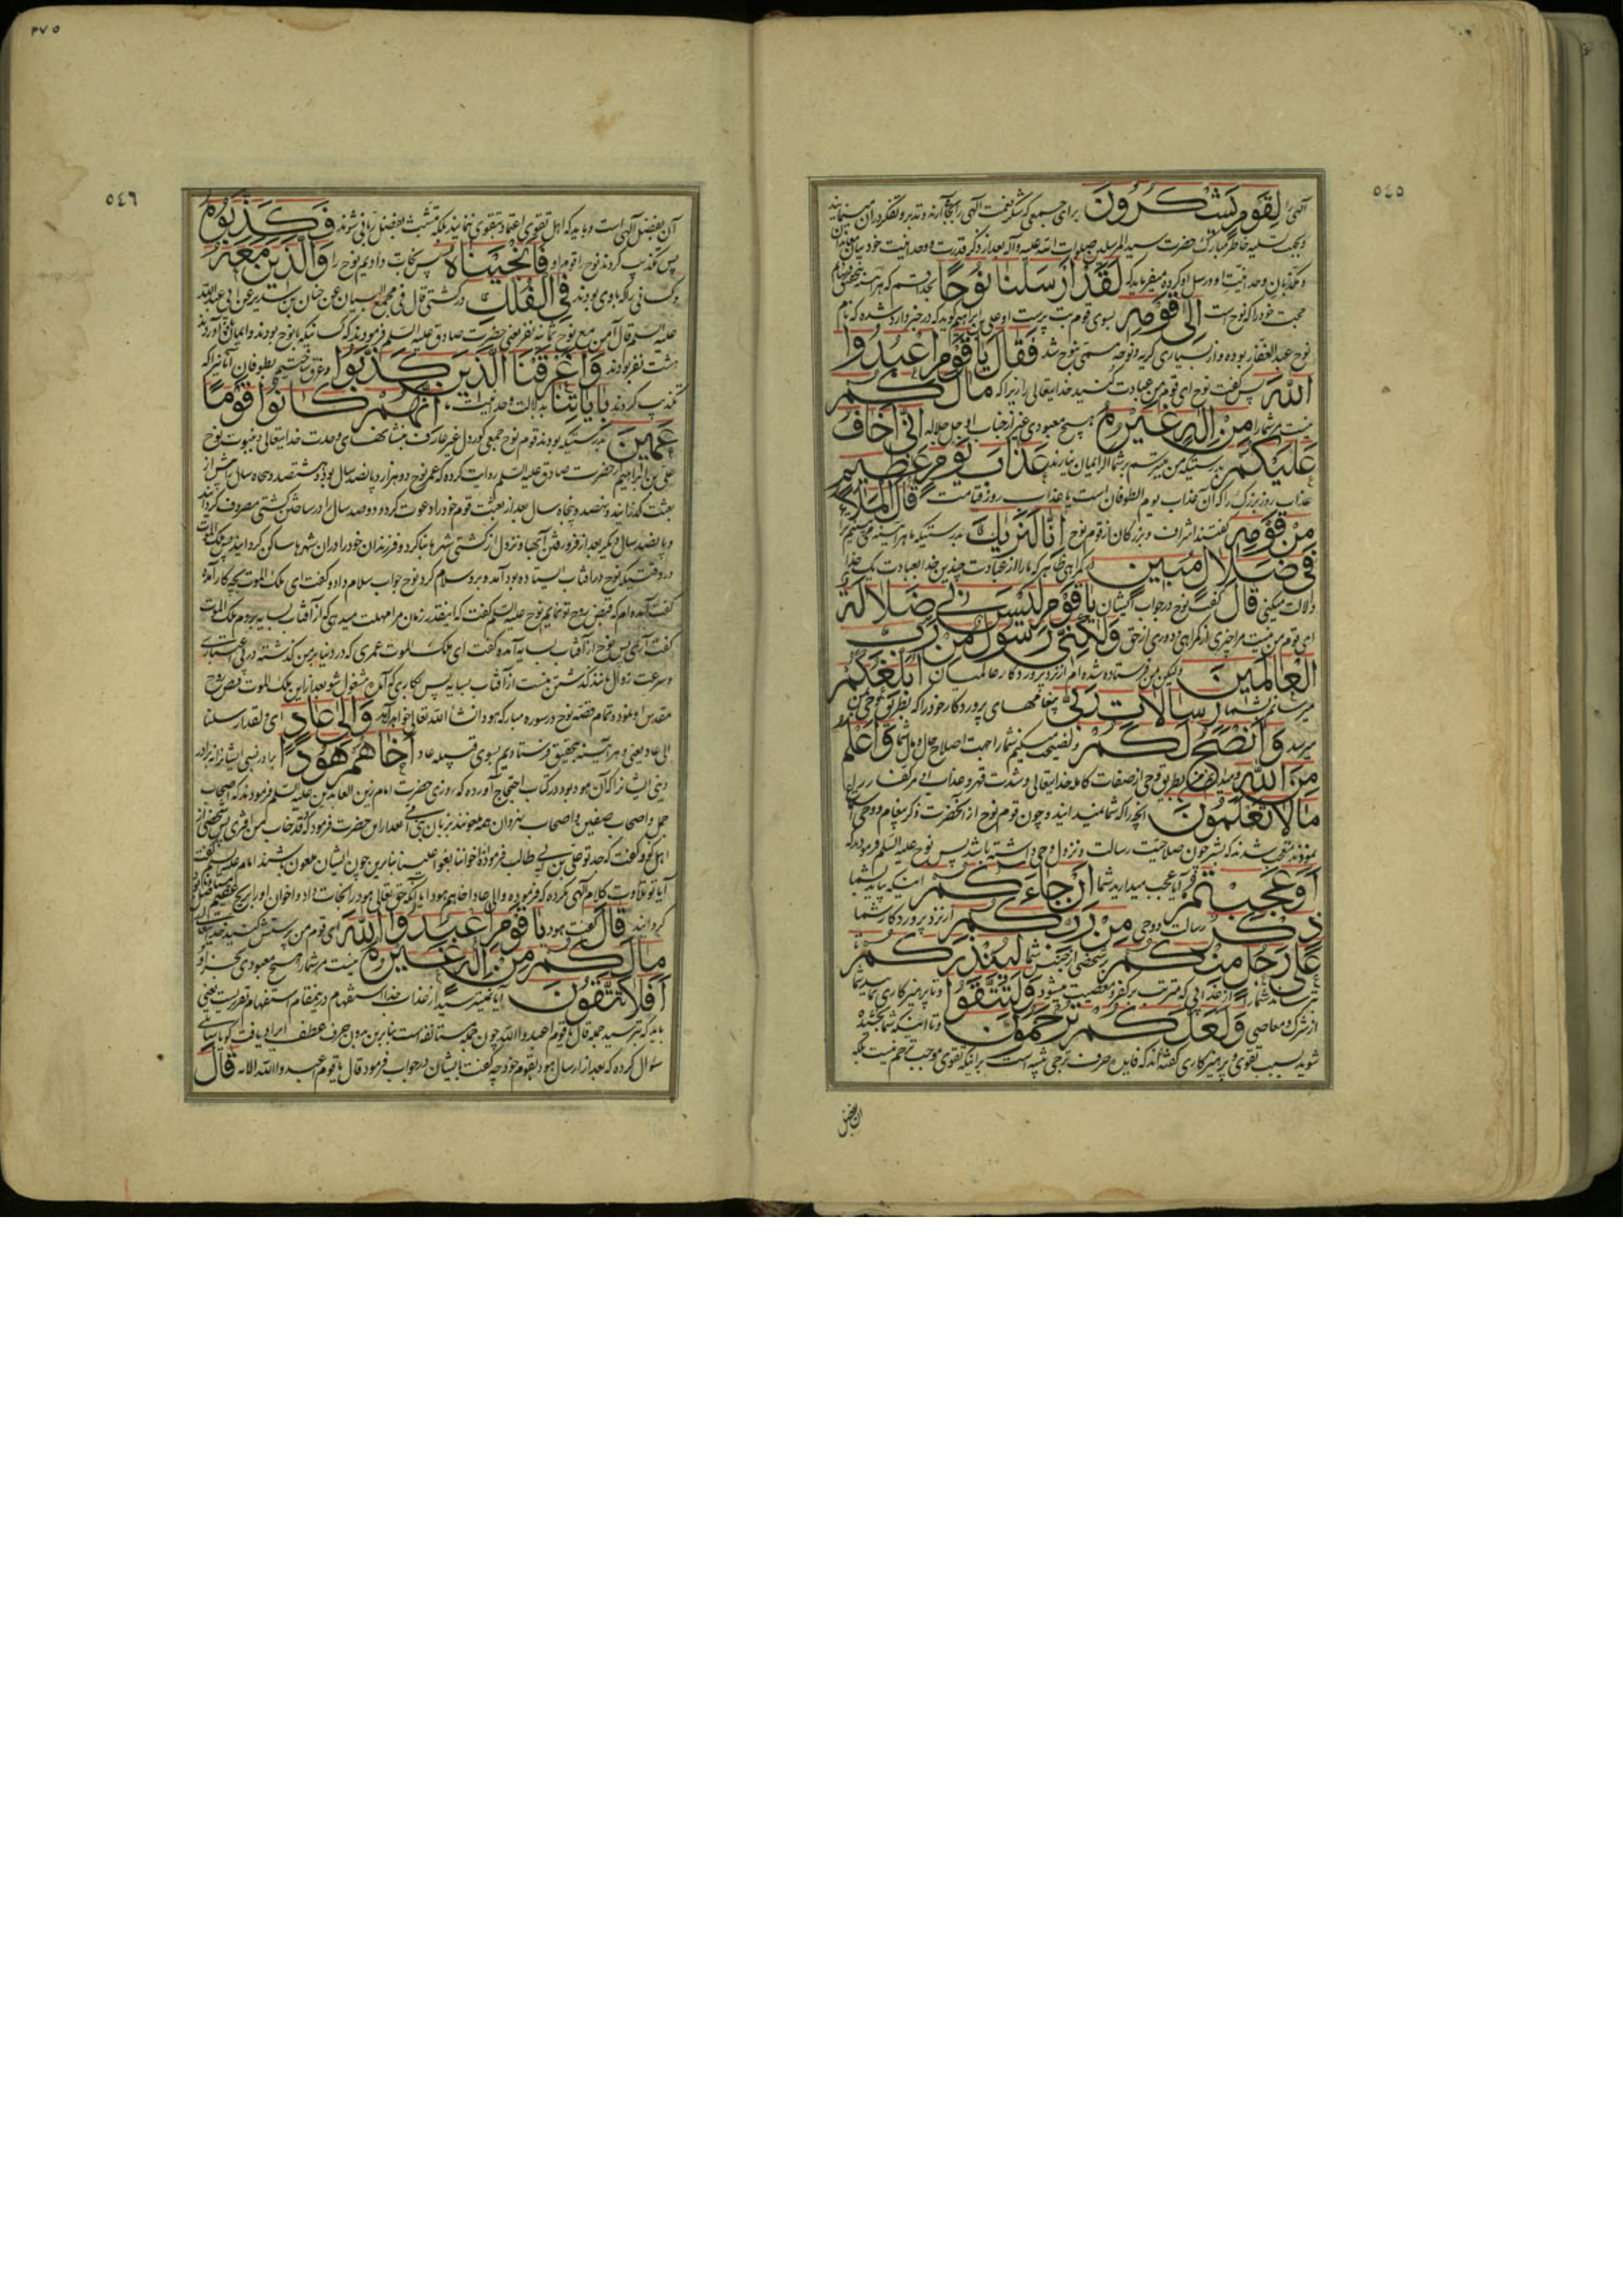 ٥٤٥
آلهی را لِقَوْمٍ يَشْكُرُونَ برای جمعی که شکر نعمت الهی را بجا آرند و تدبر و تفکر در آن مینمایند
و بجهت تسلیه خاطر مبارک حضرت سید المرسلین صلوات الله علیه وآله بعد از ذکر قدرت و وحدانیت خود بیان
و مکذبان وحدانیت او و رسل او کرده میفرماید که لَقَدْ أَرْسَلْنَا نُوحًا بخدا قسم که هر آینه بتحقیق
حجت خود را که نوح است إِلَىٰ قَوْمِهِ بسوی قوم بت پرست او علی بن ابراهیم گوید که در خبر وارد شده که نام
نوح عبد الغفار بوده و از بسیاری گریه و نوحه مسمی بنوح شد فَقَالَ يَا قَوْمِ اعْبُدُوا
اللَّهَ پس گفت نوح ای قوم من عبادت کنید خدایتعالی را زیرا که مَا لَكُمْ
نیست مر شما را مِنْ إِلَٰهٍ غَيْرُهُ هیچ معبودی غیر از جناب او جل جلاله إِنِّي أَخَافُ
عَلَيْكُمْ بدرستیکه من میترسم بر شما اگر ایمان نیارید عَذَابَ يَوْمٍ عَظِيمٍ
عذاب روز بزرگ را که آن عذاب یوم الطوفان است یا عذاب روز قیامت قَالَ الْمَلَأُ
مِنْ قَوْمِهِ گفتند اشراف و بزرگان از قوم نوح إِنَّا لَنَرَاكَ بدرستیکه ما هر آینه می بینیم ترا
فِي ضَلَالٍ مُبِينٍ در گمراهی ظاهر که ما را از عبادت چندین خدا بعبادت یک خدا
دلالت میکنی قَالَ گفت نوح در جواب ایشان يَا قَوْمِ لَيْسَ بِي ضَلَالَةٌ
ای قوم من نیست مرا چیزی از گمراهی و دوری از حق وَلَٰكِنِّي رَسُولٌ مِنْ رَبِّ
الْعَالَمِينَ ولیکن من فرستاده شده ام از نزد پروردگار عالمیان أُبَلِّغُكُمْ
میرسانم بشما رِسَالَاتِ رَبِّي پیغامهای پروردگار خود را که بطریق وحی بمن
میرسد وَأَنْصَحُ لَكُمْ و نصیحت میکنم شما را جهت اصلاح حال و بال شما وَأَعْلَمُ
مِنَ اللَّهِ و میدانم من بطریق وحی از صفات کامله خدایتعالی و شدت قهر و عذاب او
مَا لَا تَعْلَمُونَ آنچه را که شما نمیدانید و چون قوم نوح از آنحضرت ذکر پیغام و وحی
نمودند تعجب شدند که بشر چون صلاحیت رسالت و نزول وحی داشته باشد پس نوح علیه السلام فرمود که
أَوَعَجِبْتُمْ آیا عجب میدارید شما أَنْ جَاءَكُمْ اینکه بیاید بشما
ذِكْرٌ رسالت و وحی مِنْ رَبِّكُمْ از نزد پروردگار شما
عَلَىٰ رَجُلٍ مِنْكُمْ بر شخصی از جنس شما لِيُنْذِرَكُمْ
بترساند شما را از عذابی که مترتب بر کفر و معصیت میشود وَلِتَتَّقُوا و تا پرهیزکاری نمایید شما
از شرک و معاصی وَلَعَلَّكُمْ تُرْحَمُونَ و تا اینکه شما بخشیده
شوید بسبب تقوی و پرهیزکاری گفته اند که فایده حرف ترجی تنبیه است بر اینکه تقوی موجب ترحم نیست بلکه
آن بفضل
٣٧٥
٥٤٦
آن بفضل آلهی است و باید که اهل تقوی اعتماد بتقوی ننمایند بلکه متشبث بفضل ربانی شوند فَكَذَّبُوهُ
پس تکذیب کردند نوح را قوم او فَأَنْجَيْنَاهُ پس نجات دادیم نوح را وَالَّذِينَ مَعَهُ
و کسانی را که با وی بودند فِي الْفُلْكِ در کشتی قال فی مجمع البیان عن حنان بن سدیر عن ابی عبد الله
علیه السلم قال آمن مع نوح ثمانیه نفر یعنی حضرت صادق علیه السلم فرمودند که کسانیکه با نوح بودند و ایمان آوردند
هشت نفر بودند وَأَغْرَقْنَا الَّذِينَ كَذَّبُوا و غرق ساختیم بطوفان آنانرا که
تکذیب کردند بِآيَاتِنَا بدلالات وحدانیت ما إِنَّهُمْ كَانُوا قَوْمًا
عَمِينَ بدرستیکه بودند قوم نوح جمعی کور دل غیر عارف بنشانهای وحدت خدایتعالی و نبوت نوح
علی بن ابراهیم از حضرت صادق علیه السلم روایت کرده که عمر نوح دو هزار و پانصد سال بود هشتصد و پنجاه سال پیش از
بعثت گذرانید و نهصد و پنجاه سال بعد از بعثت قوم خود را دعوت کرد و دوصد سال را در ساختن کشتی مصروف گردانید
و پانصد سال دیگر بعد از فرو رفتن آبها و نزول از کشتی شهرها بنا کرد و فرزندان خود را در آن شهرها ساکن گردانید پس ملک الموت
در وقتیکه نوح در آفتاب ایستاده بود آمد و برو سلام کرد نوح جواب سلام داد و گفت ای ملک الموت بچه کار آمده
گفت آمده ام که قبض روح تو نمایم نوح علیه السلم گفت که اینقدر زمان مرا مهلت میدهی که از آفتاب بسایه بروم ملک الموت
گفت آری پس نوح از آفتاب بسایه آمده گفت ای ملک الموت عمری که در دنیا بر من گذشته در بی اعتباری
و سرعت زوال مانند گذشتن منست از آفتاب بسایه پس بکاری که آمده مشغول شو بعد از این ملک الموت قبض روح
مقدس او نمود و تمام قصه نوح در سوره مبارکه هود انشاء الله تعالی خواهد آمد وَإِلَىٰ عَادٍ ای و لقد ارسلنا
الی عاد یعنی و هر آینه بتحقیق فرستادیم بسوی قبیله عاد أَخَاهُمْ هُودًا برادر نسبی ایشانرا نه برادر
دینی ایشانرا که آن هود بود در کتاب احتجاج آورده که روزی حضرت امام زین العابدین علیه السلم فرمودند که اصحاب
جمل و اصحاب صفین و اصحاب نهروان همه ملعونند بر زبان نبی امی بعد از این حضرت فرمود که و قد خاب من افتری پس شخصی از
اهل کوفه گفت که جد تو علی بن ابی طالب فرموده اخواننا بغوا علینا بنابرین چون ایشان ملعون باشند امام علیه السلم گفت
آیا تو تلاوت کلام الهی نکرده که فرموده و الی عاد اخاهم هودا با آنکه حق تعالی هود را نجات داد و اخوان او را بریح عقیم
گردانید قَالَ گفت هود يَا قَوْمِ اعْبُدُوا اللَّهَ ای قوم من پرستش کنید خدایرا
مَا لَكُمْ مِنْ إِلَٰهٍ غَيْرُهُ نیست مر شما را هیچ معبودی بجز او
أَفَلَا تَتَّقُونَ آیا نمیترسید از عذاب خدا استفهام درینمقام استفهام تقریریست یعنی
باید که بترسید جمله قال یا قوم اعبدوا الله چون جمله مستانفه است بنابرین بدون حرف عطف ایراد یافت گویا سائلی
سؤال کرده که بعد از ارسال هود بقوم خود چه گفت بایشان در جواب فرمود قال یا قوم اعبدوا الله الآیه قَالَ